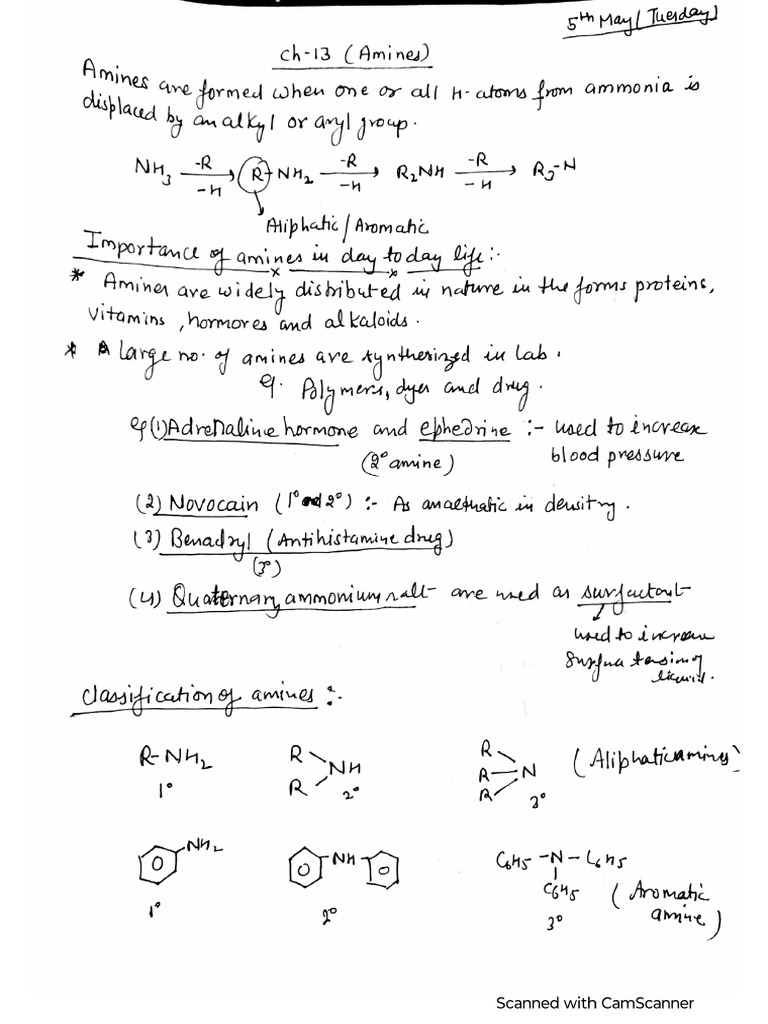 5th May (Tuesday)
Ch-13 (Amines)
Amines are formed when one or all H-atoms from ammonia is
displaced by an alkyl or aryl group.
NH3 -R -H R-NH2 -R -H R2NH -R -H R3-N
Aliphatic/Aromatic
Importance of amines in day to day life:-
* Amines are widely distributed in nature in the forms proteins,
vitamins, hormores and alkaloids.
* A large no. of amines are synthesized in lab.
eg. Polymers, dyes and drug.
eg (1) Adrenaline hormone and ephedrine :- used to increase
(2° amine) blood pressure
(2) Novocain (1° and 2°) :- As anaesthatic in densitry.
(3) Benadryl (Antihistamine drug)
(3°)
(4) Quaternary ammonium salt are used as surfactant
used to increase
surface tension of
liquid.
Classification of amines :-
R-NH2 R R NH R R R N (Aliphatic amines)
1° 2° 3°
NH2 NH C6H5-N-C6H5
C6H5 (Aromatic
1° 2° 3° amine)
Scanned with CamScanner